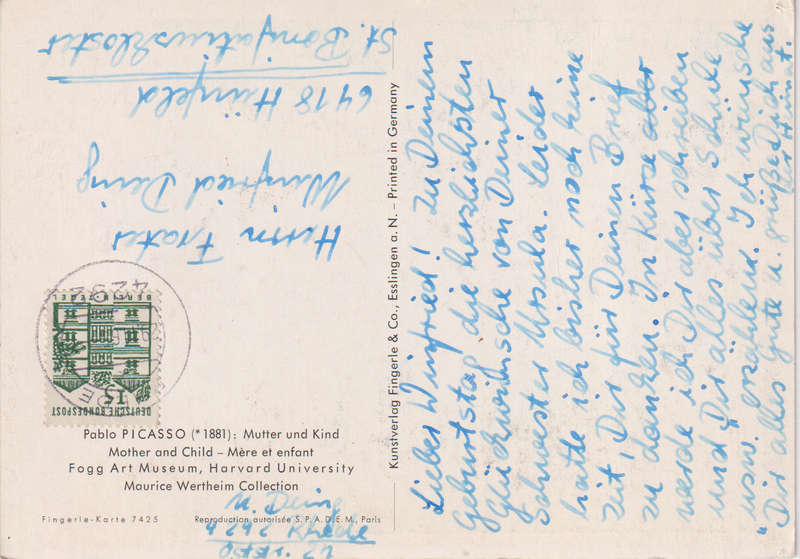 Lieber Winfried! Zu Deinem
Geburtstag die herzlichsten
Glückwünsche von Deiner
Schwester Ursula. Leider
hatte ich bisher noch keine
Zeit, Dir für Deinen Brief
zu danken. In Kürze aber
werde ich Dir aber schreiben
und Dir alles über Schule
usw. erzählen. Ich wünsche
Dir alles Gute u. grüße Dich aus
Herrn Frater
Winfried
6418 Hünfeld
St. Bonifatiuskloster
DEUTSCHE BUNDESPOST
15
BERLIN TEGEL
Pablo PICASSO (*1881): Mutter und Kind
Mother and Child – Mère et enfant
Fogg Art Museum, Harvard University
Maurice Wertheim Collection
Fingerle-Karte 7425
Reproduction autorisée S.P.A.D.E.M., Paris
Kunstverlag Fingerle & Co., Esslingen a. N. – Printed in Germany